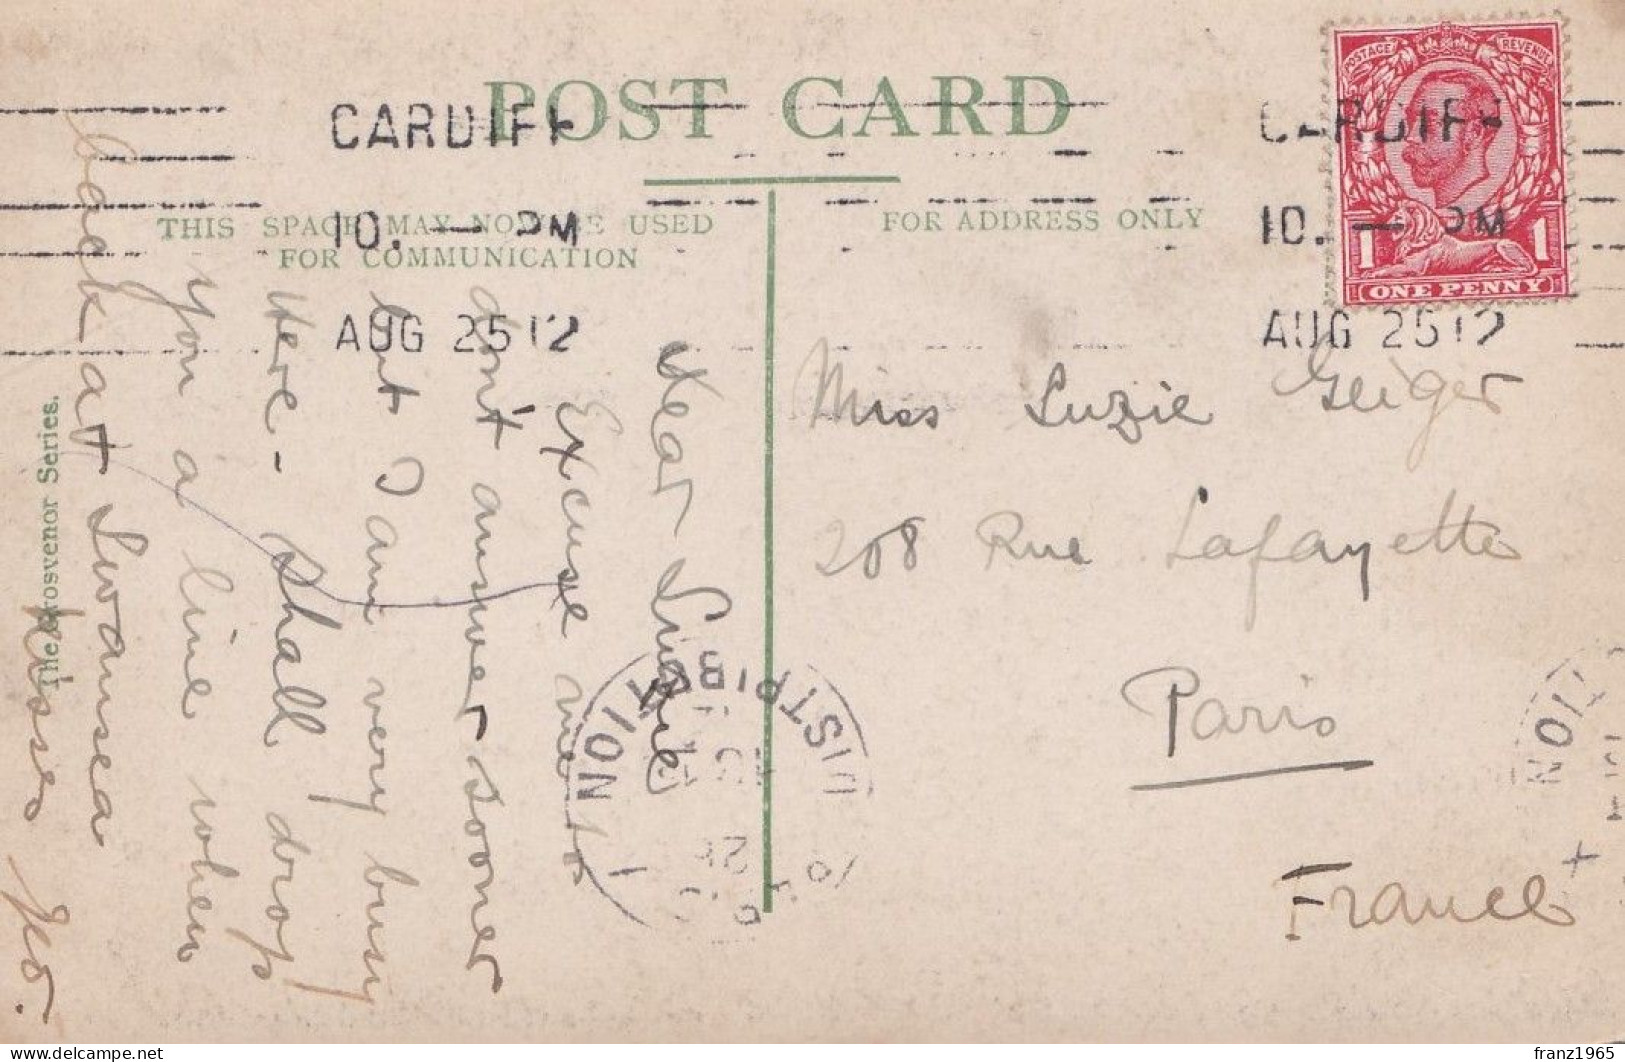 POST CARD
CARDIFF
10. — PM
AUG 25 12
CARDIFF
10. — PM
AUG 25 12
POSTAGE REVENUE
1 1
ONE PENNY
THIS SPACE MAY NOW BE USED
FOR COMMUNICATION
FOR ADDRESS ONLY
The Grosvenor Series.
Dear
Excuse me to
don't answer sooner
but I am very busy
Here - shall drop
you a line when
back at Swansea
Kisses
Miss Suzie Geiger
208 Rue Lafayette
Paris
France
DISTRIBUTION
TION
franz1965